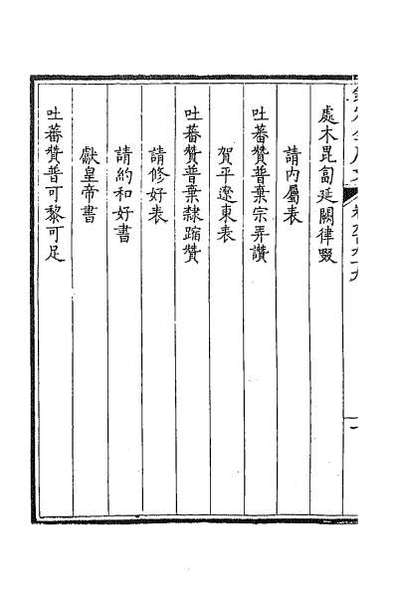 處木昆匐延闕律啜
請內屬表
吐蕃贊普棄宗弄讚
賀平遼東表
吐蕃贊普棄隸蹜贊
請修好表
請約和好書
獻皇帝書
吐蕃贊普可黎可足